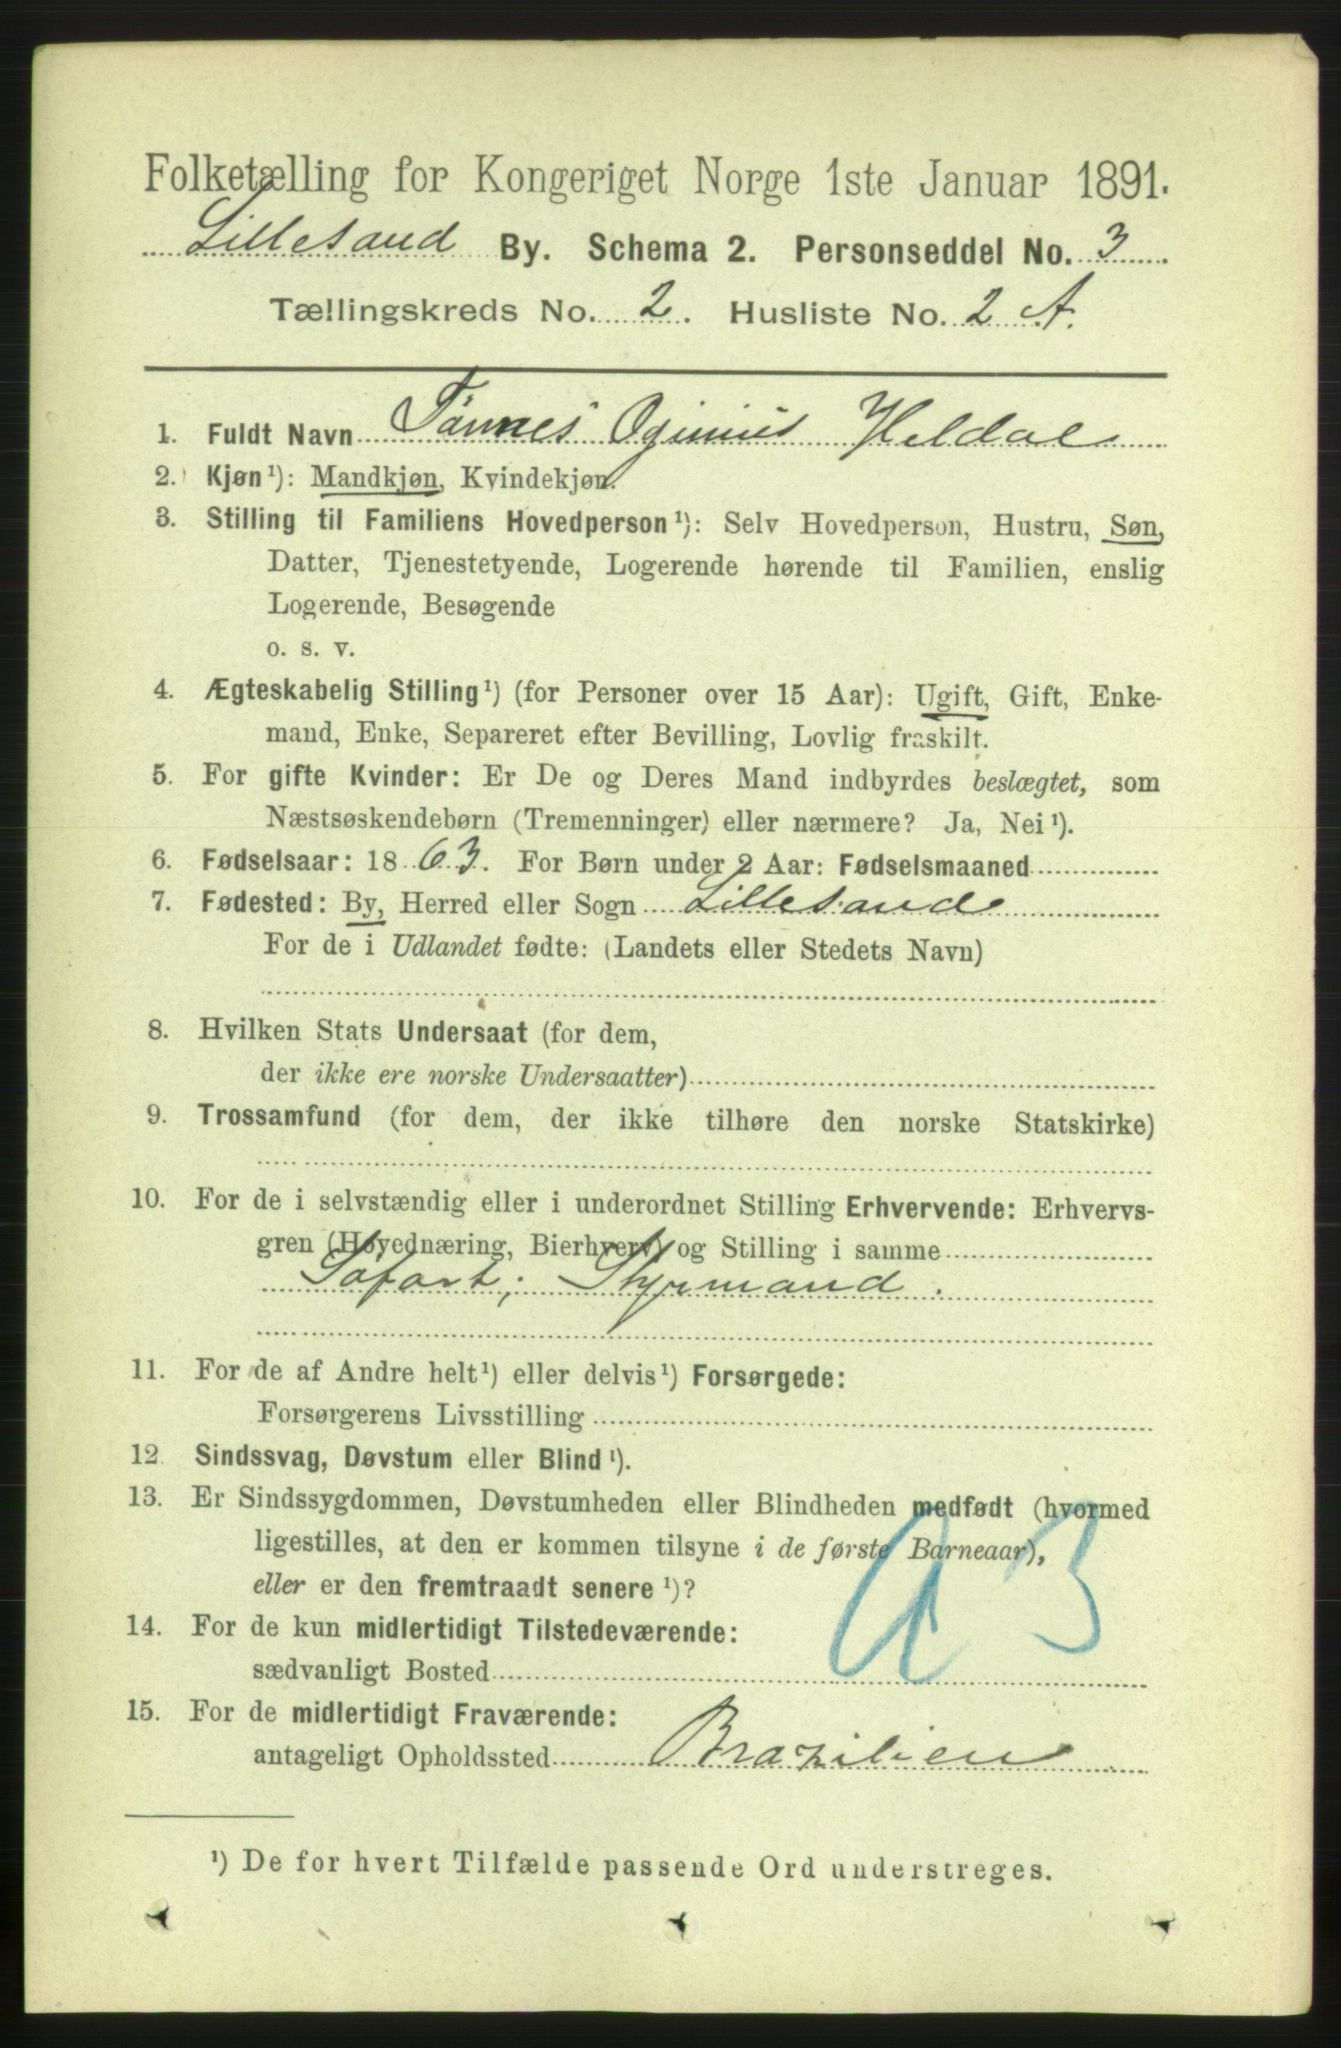 Folketælling for Kongeriget Norge 1ste Januar 1891.
Lillesand By. Schema 2. Personseddel No. 3
Tællingskreds No. 2. Husliste No. 2 A.
1. Fuldt Navn Tønnes Oginius Heldal
2. Kjøn¹): Mandkjøn, Kvindekjøn.
3. Stilling til Familiens Hovedperson¹): Selv Hovedperson, Hustru, Søn,
Datter, Tjenestetyende, Logerende hørende til Familien, enslig
Logerende, Besøgende
o. s. v.
4. Ægteskabelig Stilling¹) (for Personer over 15 Aar): Ugift, Gift, Enke-
mand, Enke, Separeret efter Bevilling, Lovlig fraskilt.
5. For gifte Kvinder: Er De og Deres Mand indbyrdes beslægtet, som
Næstsøskendebørn (Tremenninger) eller nærmere? Ja, Nei¹).
6. Fødselsaar: 1863. For Børn under 2 Aar: Fødselsmaaned
7. Fødested: By, Herred eller Sogn Lillesand
For de i Udlandet fødte: (Landets eller Stedets Navn)
8. Hvilken Stats Undersaat (for dem,
der ikke ere norske Undersaatter)
9. Trossamfund (for dem, der ikke tilhøre den norske Statskirke)
10. For de i selvstændig eller i underordnet Stilling Erhvervende: Erhvervs-
gren (Hovednæring, Bierhverv) og Stilling i samme
Søfart; Styrmand.
11. For de af Andre helt¹) eller delvis¹) Forsørgede:
Forsørgerens Livsstilling
12. Sindssvag, Døvstum eller Blind¹).
13. Er Sindssygdommen, Døvstumheden eller Blindheden medfødt (hvormed
ligestilles, at den er kommen tilsyne i de første Barneaar),
eller er den fremtraadt senere¹)?
14. For de kun midlertidigt Tilstedeværende:
sædvanligt Bosted
15. For de midlertidigt Fraværende:
antageligt Opholdssted Brazilien
¹) De for hvert Tilfælde passende Ord understreges.